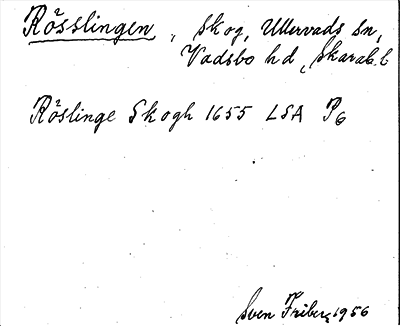 Rösslingen, Skog, Ullervads sn,
Vadsbo hd, Skarab. l
Röslinge Skogh 1655 LSA P6
Sven Friberg 1956